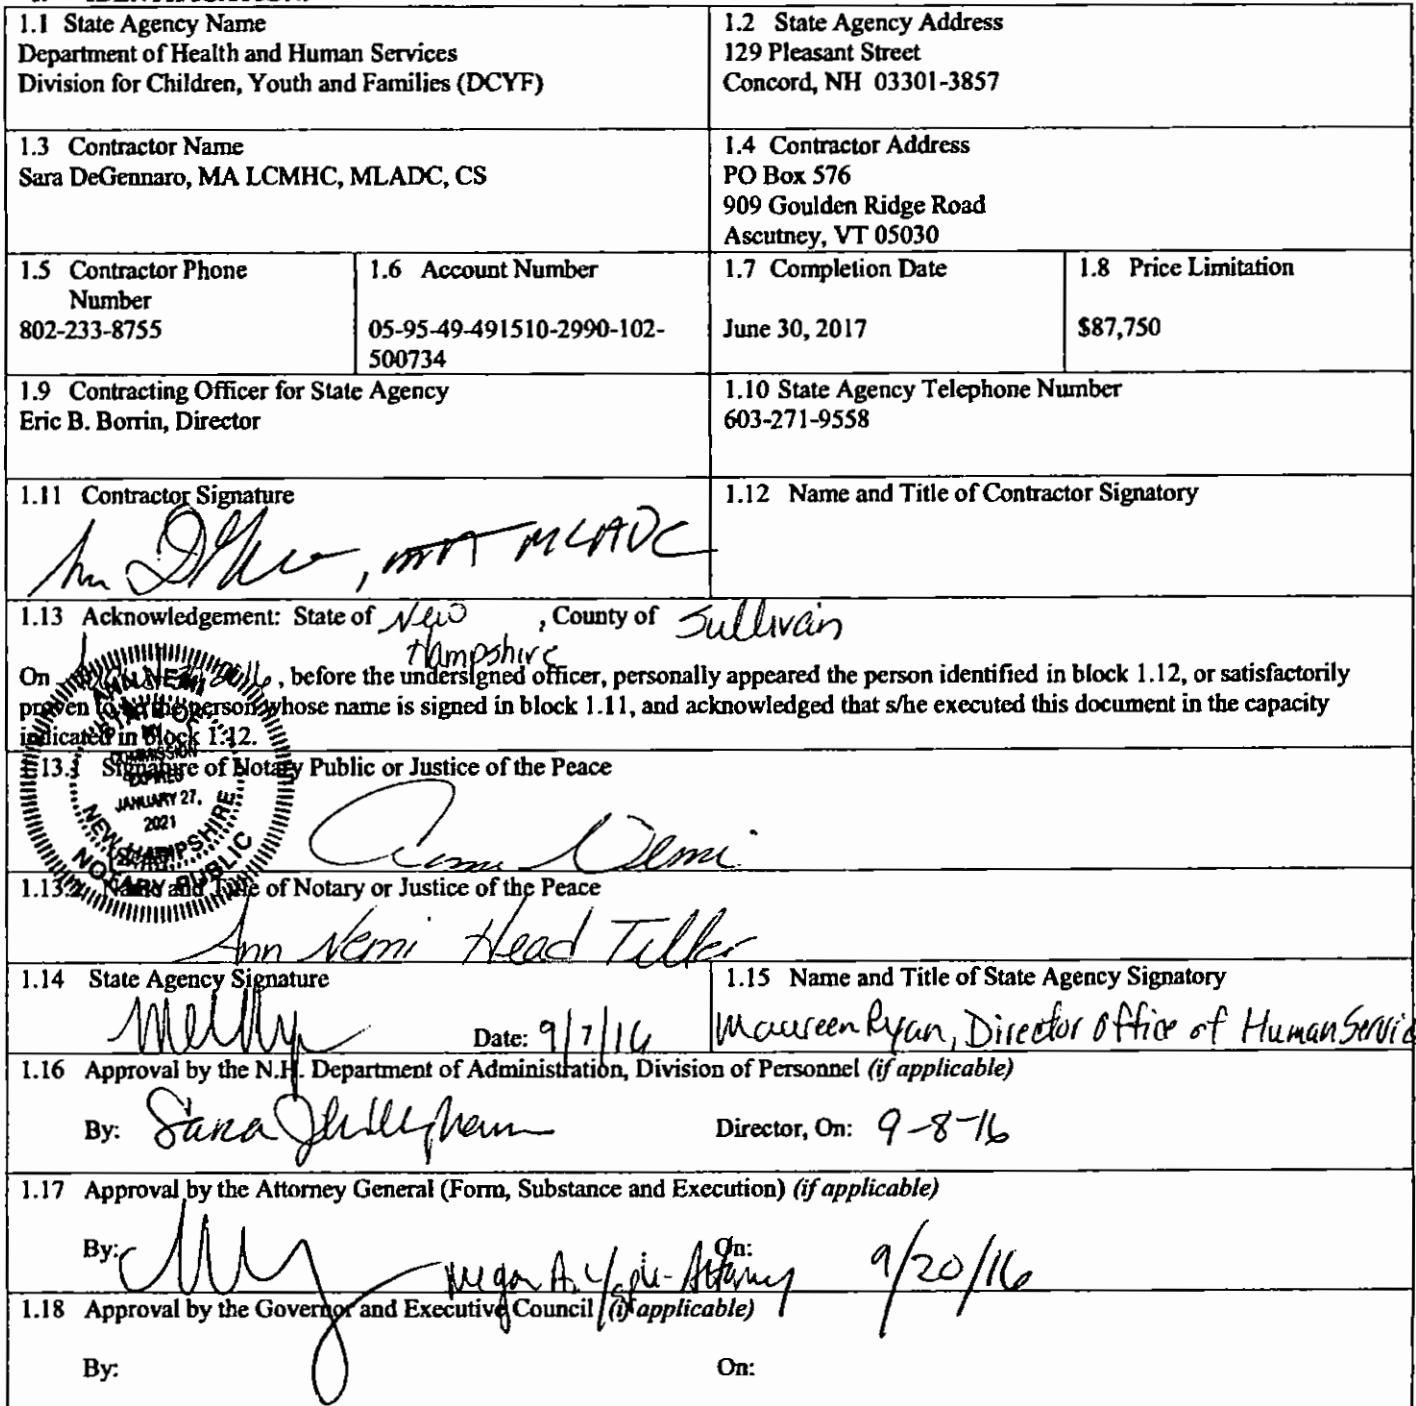 1.1 State Agency Name
Department of Health and Human Services
Division for Children, Youth and Families (DCYF)
1.2 State Agency Address
129 Pleasant Street
Concord, NH 03301-3857
1.3 Contractor Name
Sara DeGennaro, MA LCMHC, MLADC, CS
1.4 Contractor Address
PO Box 576
909 Goulden Ridge Road
Ascutney, VT 05030
1.5 Contractor Phone
Number
802-233-8755
1.6 Account Number
05-95-49-491510-2990-102-
500734
1.7 Completion Date
June 30, 2017
1.8 Price Limitation
$87,750
1.9 Contracting Officer for State Agency
Eric B. Borrin, Director
1.10 State Agency Telephone Number
603-271-9558
1.11 Contractor Signature
, MA MLADC
1.12 Name and Title of Contractor Signatory
1.13 Acknowledgement: State of New Hampshire, County of Sullivan
On , before the undersigned officer, personally appeared the person identified in block 1.12, or satisfactorily
proven to be the person whose name is signed in block 1.11, and acknowledged that s/he executed this document in the capacity
indicated in block 1.12.
1.13.1 Signature of Notary Public or Justice of the Peace
Ann Nemi
ANN NEMI
STATE OF
MY
COMMISSION
EXPIRES
JANUARY 27,
2021
NEW HAMPSHIRE
NOTARY PUBLIC
1.13.2 Name and Title of Notary or Justice of the Peace
Ann Nemi Head Teller
1.14 State Agency Signature
Date: 9/7/16
1.15 Name and Title of State Agency Signatory
Maureen Ryan, Director Office of Human Servic
1.16 Approval by the N.H. Department of Administration, Division of Personnel (if applicable)
By: Sara
Director, On: 9-8-16
1.17 Approval by the Attorney General (Form, Substance and Execution) (if applicable)
By: Megan A. - Attorney
On: 9/20/16
1.18 Approval by the Governor and Executive Council (if applicable)
By:
On: